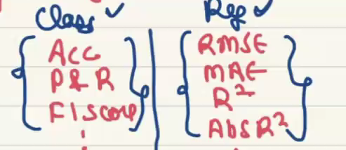 Class ✓
Reg ✓
ACC
P & R
F1 Score
RMSE
MAE
R²
Abs R²